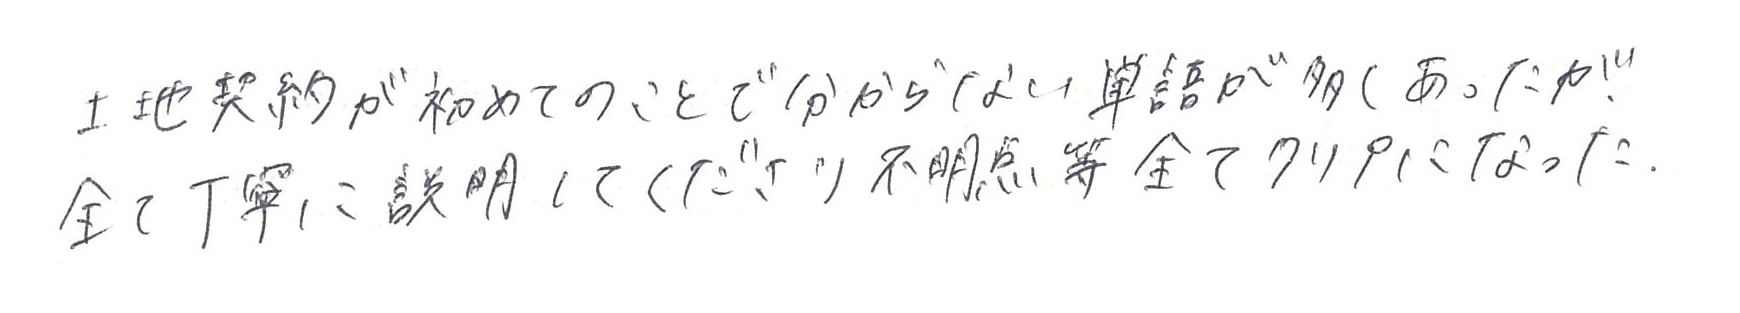 土地契約が初めてのことで分からない単語が多くあったが
全て丁寧に説明してくださり不明点等全てクリアになった.